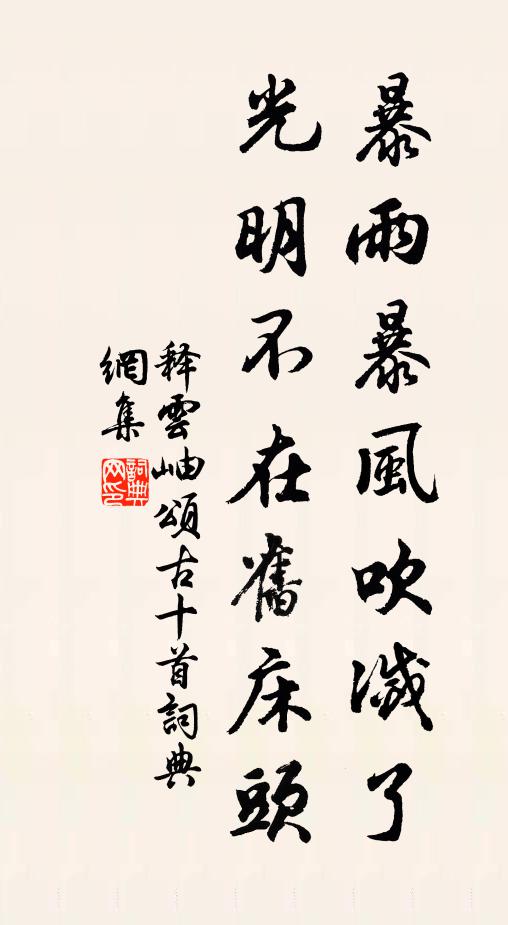 暴雨暴風吹滅了
光明不在舊床頭
釋雲岫頌古十首詞典
網集
詞典网印